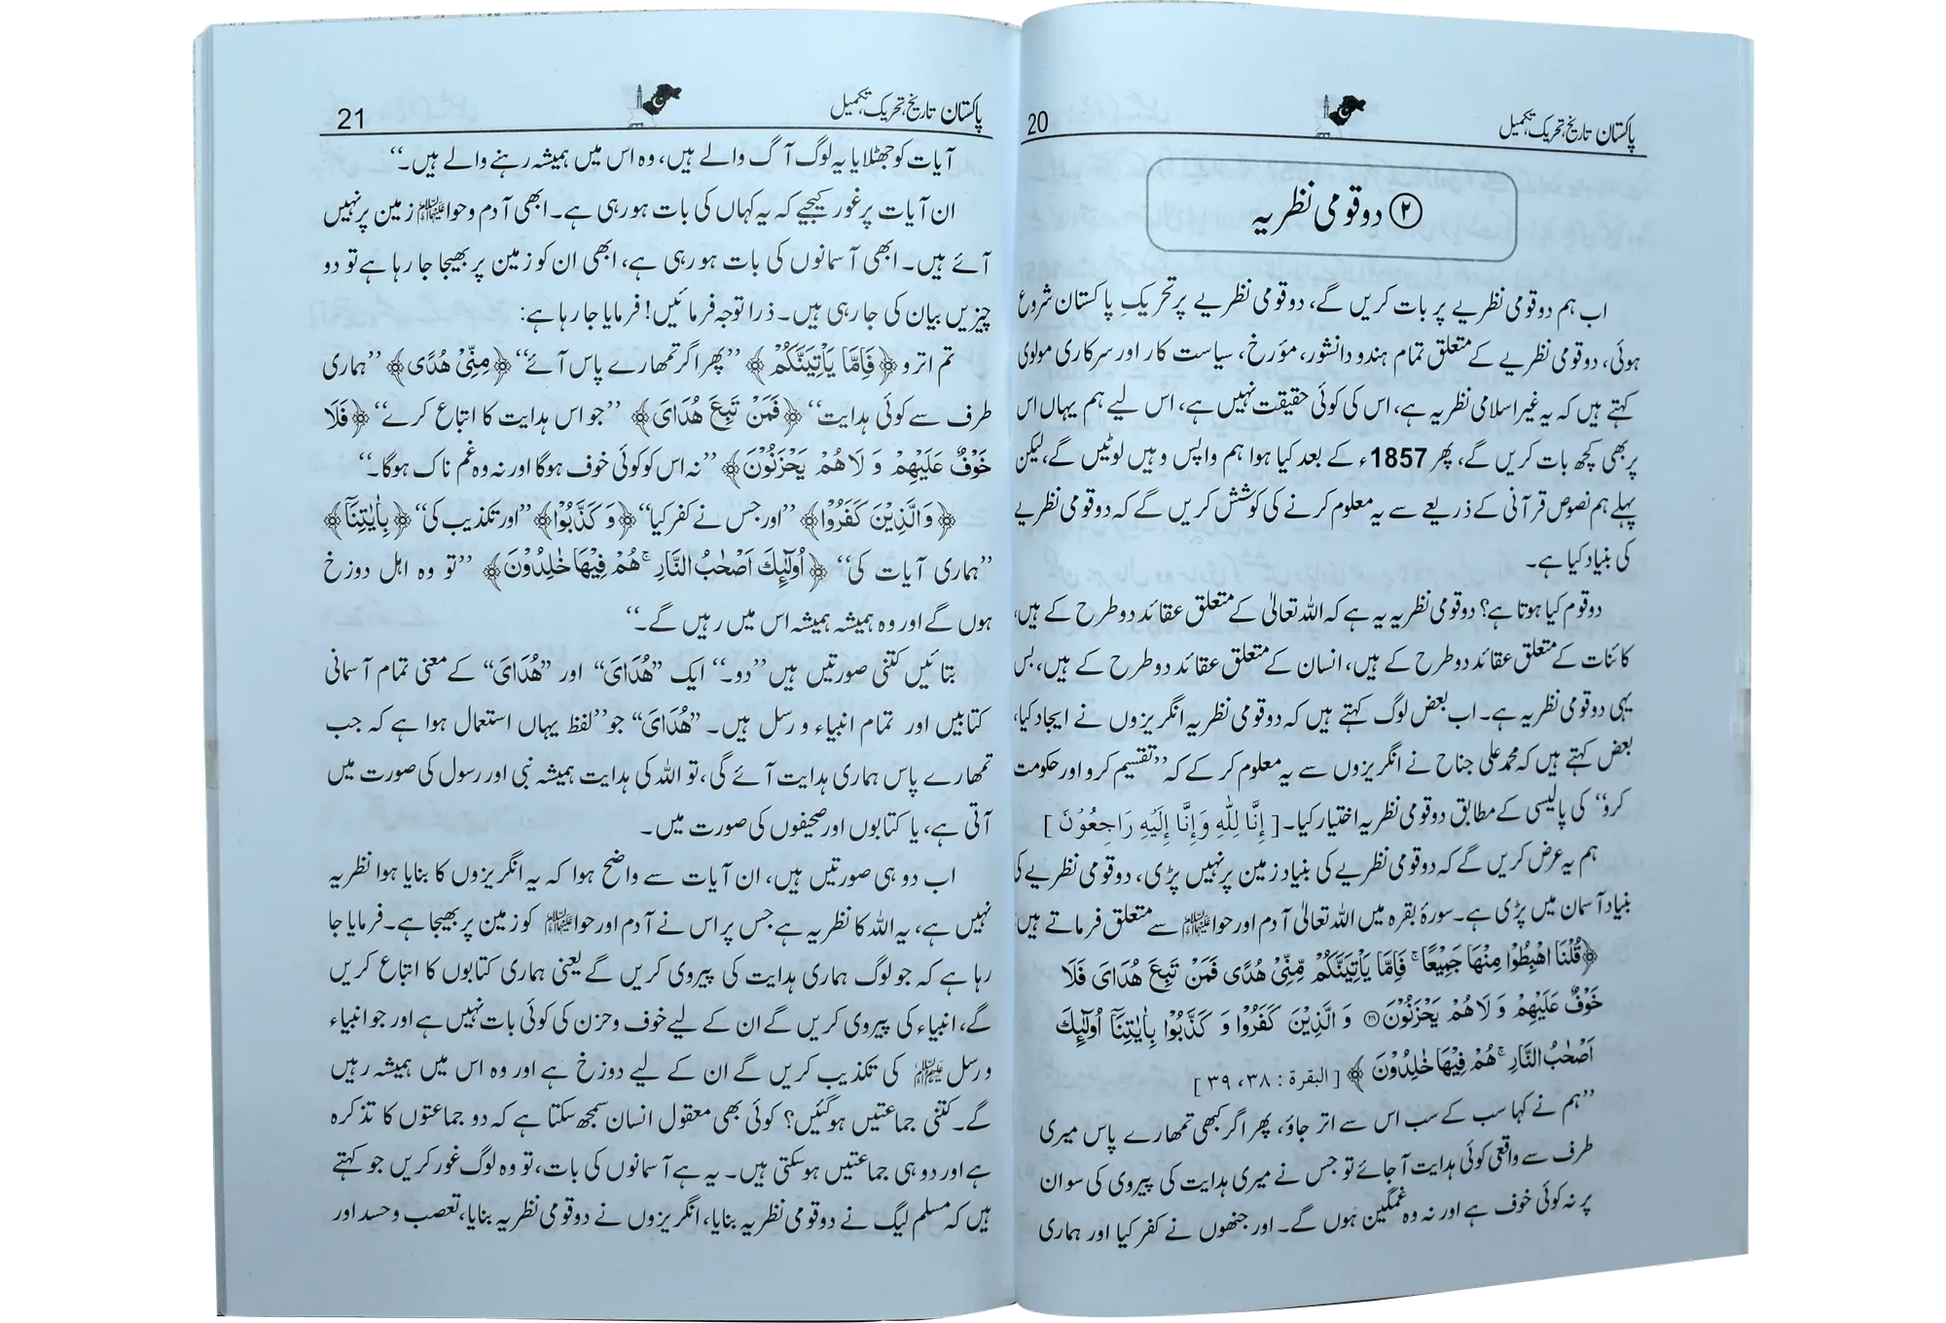 پاکستان تاریخ، تحریک، تکمیل
20
② دو قومی نظریہ
اب ہم دو قومی نظریے پر بات کریں گے، دو قومی نظریے پر تحریکِ پاکستان شروع
ہوئی، دو قومی نظریے کے متعلق تمام ہندو دانشور، مؤرخ، سیاست کار اور سرکاری مولوی
کہتے ہیں کہ یہ غیر اسلامی نظریہ ہے، اس کی کوئی حقیقت نہیں ہے، اس لیے ہم یہاں اس
پر بھی کچھ بات کریں گے، پھر 1857ء کے بعد کیا ہوا ہم واپس وہیں لوٹیں گے، لیکن
پہلے ہم نصوص قرآنی کے ذریعے سے یہ معلوم کرنے کی کوشش کریں گے کہ دو قومی نظریے
کی بنیاد کیا ہے۔
دو قوم کیا ہوتا ہے؟ دو قومی نظریہ یہ ہے کہ اللہ تعالیٰ کے متعلق عقائد دو طرح کے ہیں،
کائنات کے متعلق عقائد دو طرح کے ہیں، انسان کے متعلق عقائد دو طرح کے ہیں، بس
یہی دو قومی نظریہ ہے۔ اب بعض لوگ کہتے ہیں کہ دو قومی نظریہ انگریزوں نے ایجاد کیا،
بعض کہتے ہیں کہ محمد علی جناح نے انگریزوں سے یہ معلوم کر کے کہ ”تقسیم کرو اور حکومت
کرو“ کی پالیسی کے مطابق دو قومی نظریہ اختیار کیا۔ [ إِنَّا لِلّٰهِ وَإِنَّا إِلَيْهِ رَاجِعُوْنَ ]
ہم یہ عرض کریں گے کہ دو قومی نظریے کی بنیاد زمین پر نہیں پڑی، دو قومی نظریے کی
بنیاد آسمان میں پڑی ہے۔ سورۂ بقرہ میں اللہ تعالیٰ آدم اور حوا علیہما السلام سے متعلق فرماتے ہیں:
﴿قُلْنَا اهْبِطُوْا مِنْهَا جَمِيْعًا ۚ فَاِمَّا يَاْتِيَنَّكُمْ مِّنِّيْ هُدًى فَمَنْ تَبِعَ هُدَايَ فَلَا
خَوْفٌ عَلَيْهِمْ وَ لَا هُمْ يَحْزَنُوْنَ ۝۳۸ وَ الَّذِيْنَ كَفَرُوْا وَ كَذَّبُوْا بِاٰيٰتِنَاۤ اُولٰٓىِٕكَ
اَصْحٰبُ النَّارِ ۚ هُمْ فِيْهَا خٰلِدُوْنَ ﴾ [ البقرة : ۳۸، ۳۹ ]
”ہم نے کہا سب کے سب اس سے اتر جاؤ، پھر اگر کبھی تمھارے پاس میری
طرف سے واقعی کوئی ہدایت آ جائے تو جس نے میری ہدایت کی پیروی کی سو ان
پر نہ کوئی خوف ہے اور نہ وہ غمگین ہوں گے۔ اور جنھوں نے کفر کیا اور ہماری
پاکستان تاریخ، تحریک، تکمیل
21
آیات کو جھٹلایا یہ لوگ آگ والے ہیں، وہ اس میں ہمیشہ رہنے والے ہیں۔“
ان آیات پر غور کیجیے کہ یہ کہاں کی بات ہو رہی ہے۔ ابھی آدم و حوا علیہما السلام زمین پر نہیں
آئے ہیں۔ ابھی آسمانوں کی بات ہو رہی ہے، ابھی ان کو زمین پر بھیجا جا رہا ہے تو دو
چیزیں بیان کی جا رہی ہیں۔ ذرا توجہ فرمائیں! فرمایا جا رہا ہے:
تم اترو ﴿فَاِمَّا يَاْتِيَنَّكُمْ ﴾ ”پھر اگر تمھارے پاس آئے“ ﴿مِنِّيْ هُدًى ﴾ ”ہماری
طرف سے کوئی ہدایت“ ﴿فَمَنْ تَبِعَ هُدَايَ﴾ ”جو اس ہدایت کا اتباع کرے“ ﴿فَلَا
خَوْفٌ عَلَيْهِمْ وَ لَا هُمْ يَحْزَنُوْنَ﴾ ”نہ اس کو کوئی خوف ہوگا اور نہ وہ غم ناک ہوگا۔“
﴿وَ الَّذِيْنَ كَفَرُوْا﴾ ”اور جس نے کفر کیا“ ﴿وَ كَذَّبُوْا﴾ ”اور تکذیب کی“ ﴿بِاٰيٰتِنَاۤ﴾
”ہماری آیات کی“ ﴿اُولٰٓىِٕكَ اَصْحٰبُ النَّارِ ۚ هُمْ فِيْهَا خٰلِدُوْنَ﴾ ”تو وہ اہل دوزخ
ہوں گے اور وہ ہمیشہ ہمیشہ اس میں رہیں گے۔“
بتائیں کتنی صورتیں ہیں ”دو۔“ ایک ”هُدَايَ“ اور ”هُدَايَ“ کے معنی تمام آسمانی
کتابیں اور تمام انبیاء و رسل ہیں۔ ”هُدَايَ“ جو ”لفظ یہاں استعمال ہوا ہے کہ جب
تمھارے پاس ہماری ہدایت آئے گی، تو اللہ کی ہدایت ہمیشہ نبی اور رسول کی صورت میں
آتی ہے، یا کتابوں اور صحیفوں کی صورت میں۔
اب دو ہی صورتیں ہیں، ان آیات سے واضح ہوا کہ یہ انگریزوں کا بنایا ہوا نظریہ
نہیں ہے، یہ اللہ کا نظریہ ہے جس پر اس نے آدم اور حوا علیہما السلام کو زمین پر بھیجا ہے۔ فرمایا جا
رہا ہے کہ جو لوگ ہماری ہدایت کی پیروی کریں گے یعنی ہماری کتابوں کا اتباع کریں
گے، انبیاء کی پیروی کریں گے ان کے لیے خوف و حزن کی کوئی بات نہیں ہے اور جو انبیاء
و رسل علیہم السلام کی تکذیب کریں گے ان کے لیے دوزخ ہے اور وہ اس میں ہمیشہ رہیں
گے۔ کتنی جماعتیں ہو گئیں؟ کوئی بھی معقول انسان سمجھ سکتا ہے کہ دو جماعتوں کا تذکرہ
ہے اور دو ہی جماعتیں ہو سکتی ہیں۔ یہ ہے آسمانوں کی بات، تو وہ لوگ غور کریں جو کہتے
ہیں کہ مسلم لیگ نے دو قومی نظریہ بنایا، انگریزوں نے دو قومی نظریہ بنایا، تعصب و حسد اور